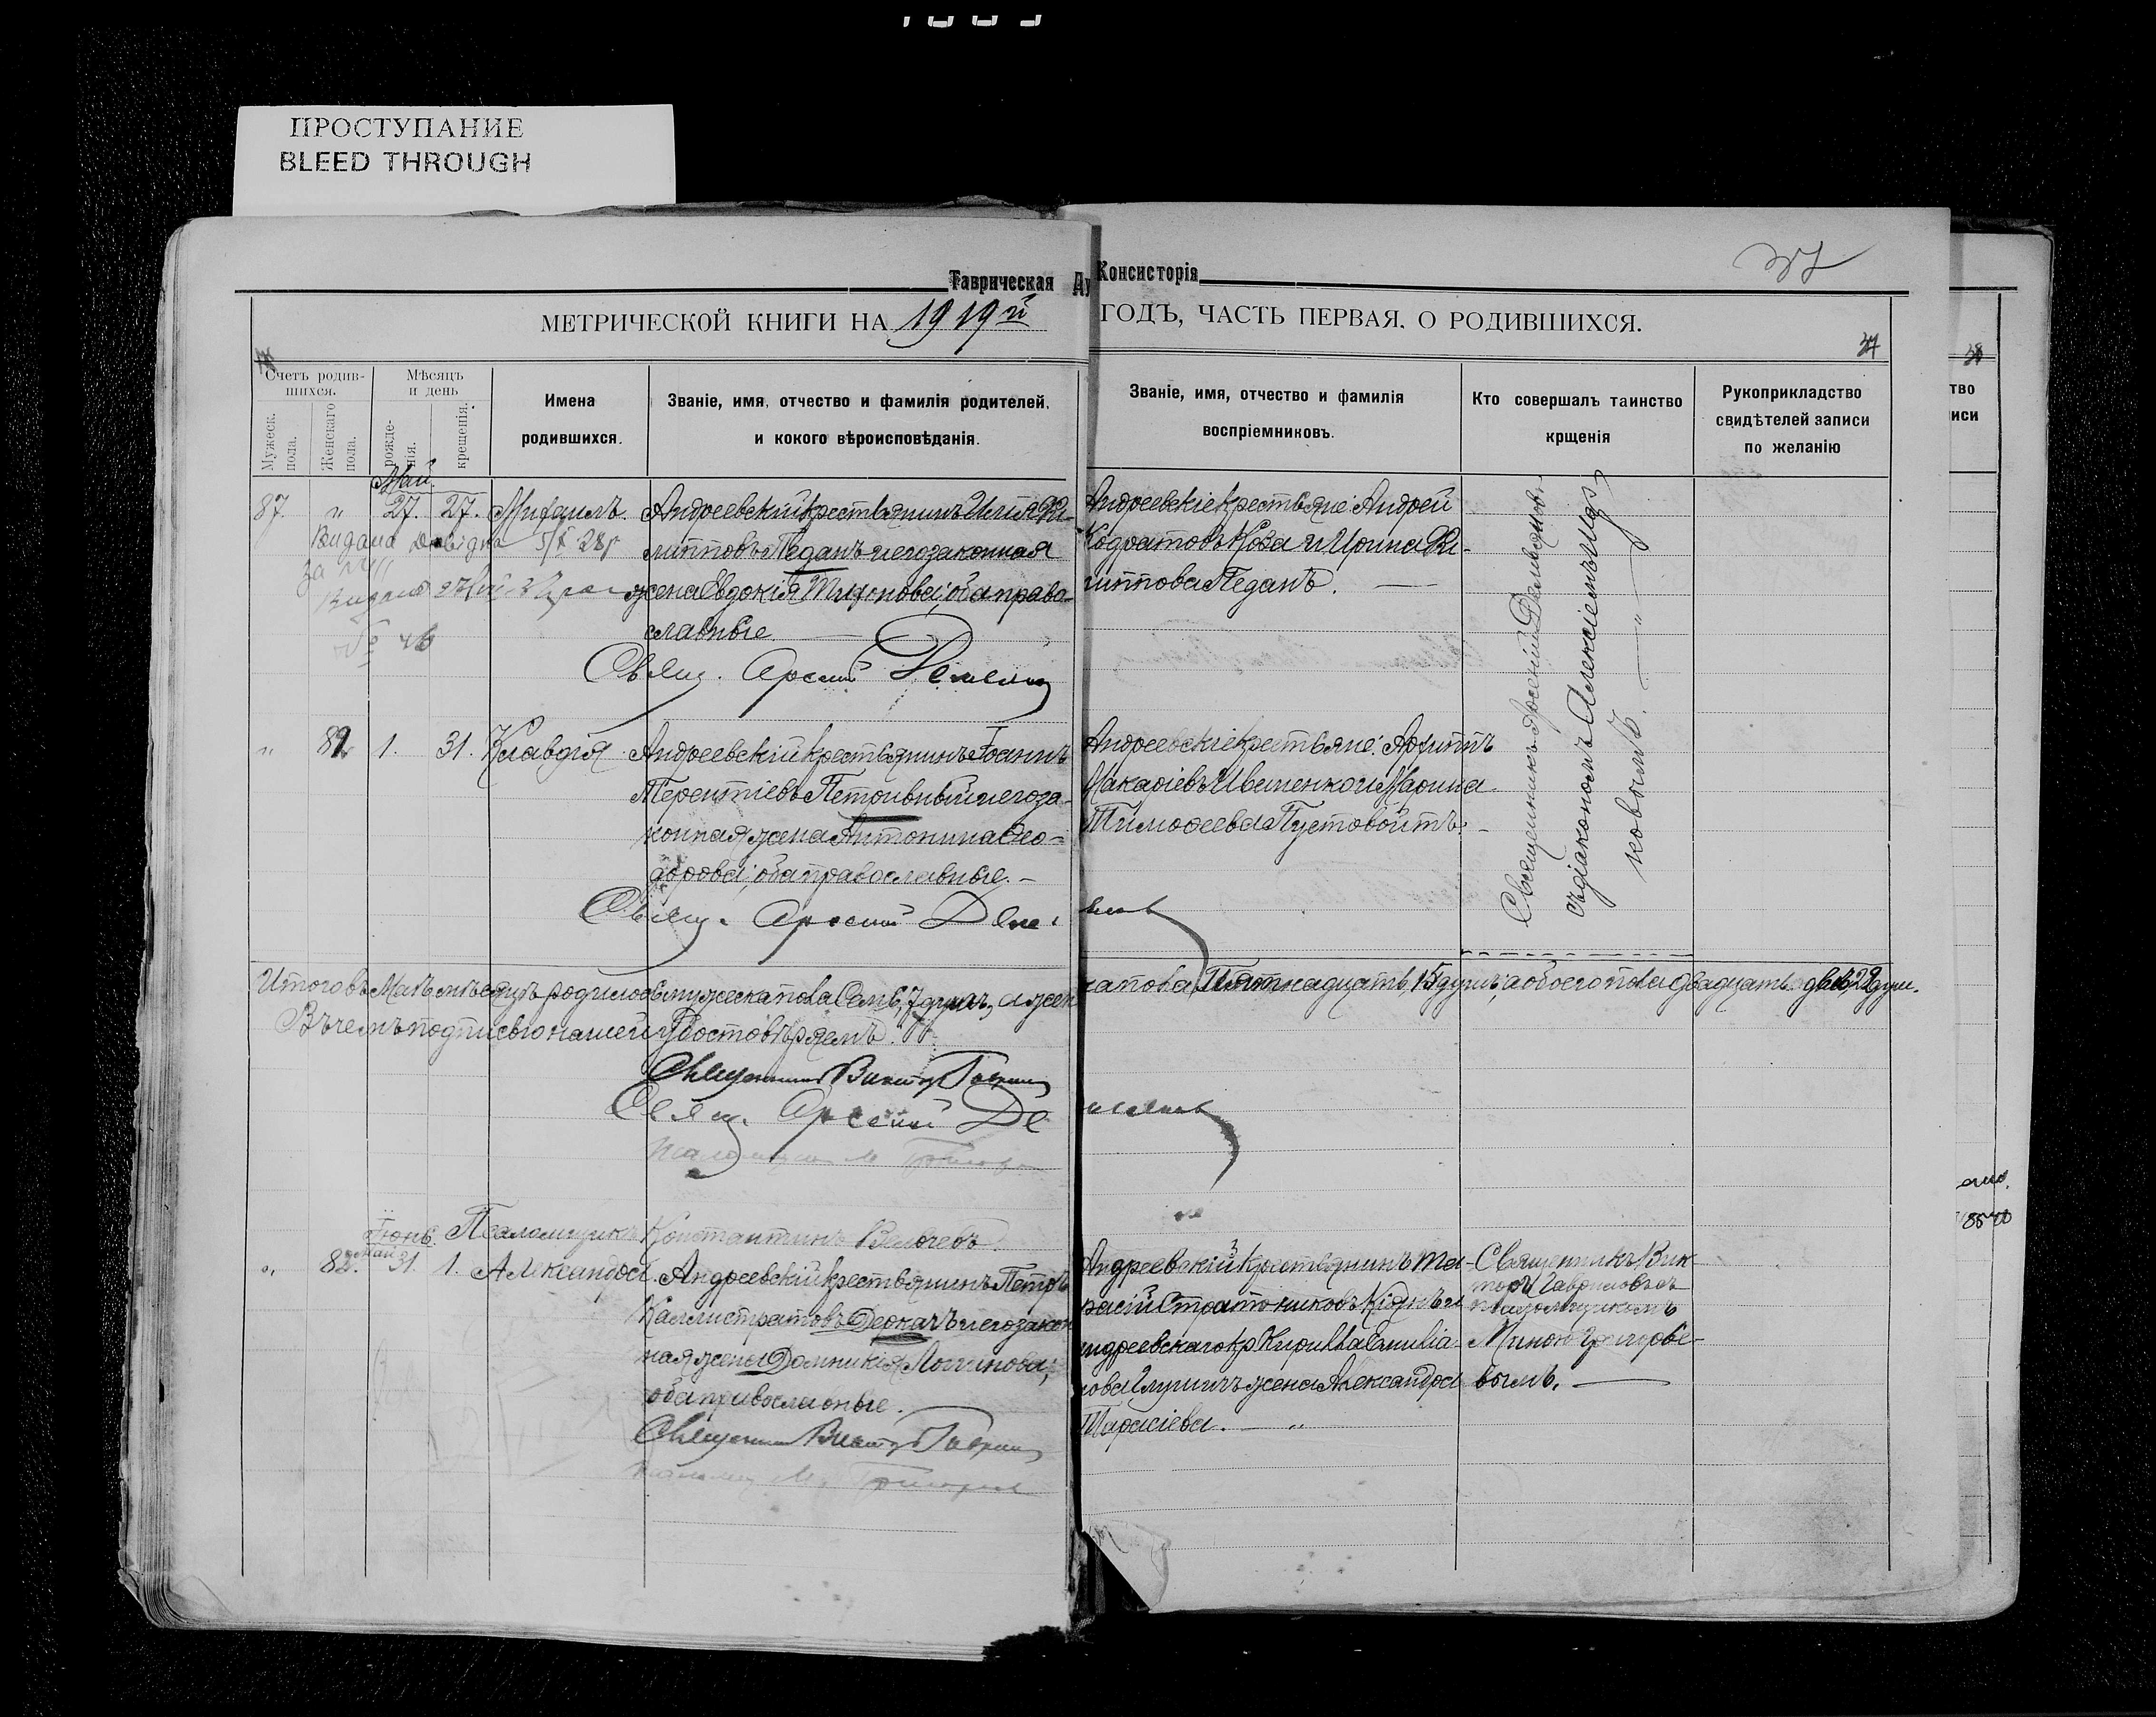 ПРОСТУПАНИЕ
BLEED THROUGH
Таврическая Ду Консисторія
МЕТРИЧЕСКОЙ КНИГИ НА 1919й ГОДЪ, ЧАСТЬ ПЕРВАЯ, О РОДИВШИХСЯ.
37
38
Счетъ родив-
шихся.
Мужеск.
пола.
Женскаго
пола.
Мѣсяцъ
и день
рожде-
нія.
крещенія.
Имена
родившихся.
Званіе, имя, отчество и фамилія родителей,
и кокого вѣроисповѣданія.
Званіе, имя, отчество и фамилія
воспріемниковъ.
Кто совершалъ таинство
крщенія
Рукоприкладство
свидѣтелей записи
по желанію
тво
иси
Май.
87. " 27. 27. Михаилъ. Андреевскій крестьянинъ Илія Фи-
липповъ Педанъ и его законная
жена Евдокія Тихонова; оба право-
славные
Свящ. Арсеній Демьяновъ
Андреевскіе крестьяне: Андрей
Кодратовъ Коза и Ирина Фи-
липпова Педанъ.
Видана довідка
за №
№ 46
Священникъ Арсеній Демьяновъ
съ діакономъ Алексіемъ
ковымъ. "
" 81. 1. 31. Клавдія Андреевскій крестьянинъ Іоаннъ
Терентіевъ Петоивный и его за-
конная жена Антонина Ѳео-
дорова; оба православные.
Свящ. Арсеній Демьяновъ
Андреевскіе крестьяне: Архиппъ
Макаріевъ Ивашенко и Марина
Тимоѳеева Пустовойтъ.
Итого въ Маѣ мѣсяцѣ родилось мужеска пола Семь, 7 душъ, а женскапола Пятнадцать, 15 душъ, а обоего пола двадцать двѣ, 22 душ.
Въ чемъ подписью нашей удостовѣряемъ.
Священникъ Викторъ Гаврил
Свящ. Арсеній Демьяновъ
Псаломщикъ М Григор
Псаломщикъ Константинъ
Іюнь.
Май
" 82. 31. 1. Александра. Андреевскій крестьянинъ Петръ
Каллистратовъ Деркачъ и его закон
ная жена Домникія Логгинова;
оба православные.
Священникъ Викторъ Гаврил
Псаломщ М. Григор
Андреевскій крестьянинъ Та-
расій Стратониковъ и
ндреевскаго кр Кирилла Емиліа-
нова жена Александра
Тарасіева. "
Священникъ Вик-
торъ Гавриловъ съ
псаломщикомъ
Миною Григорье-
вымъ.